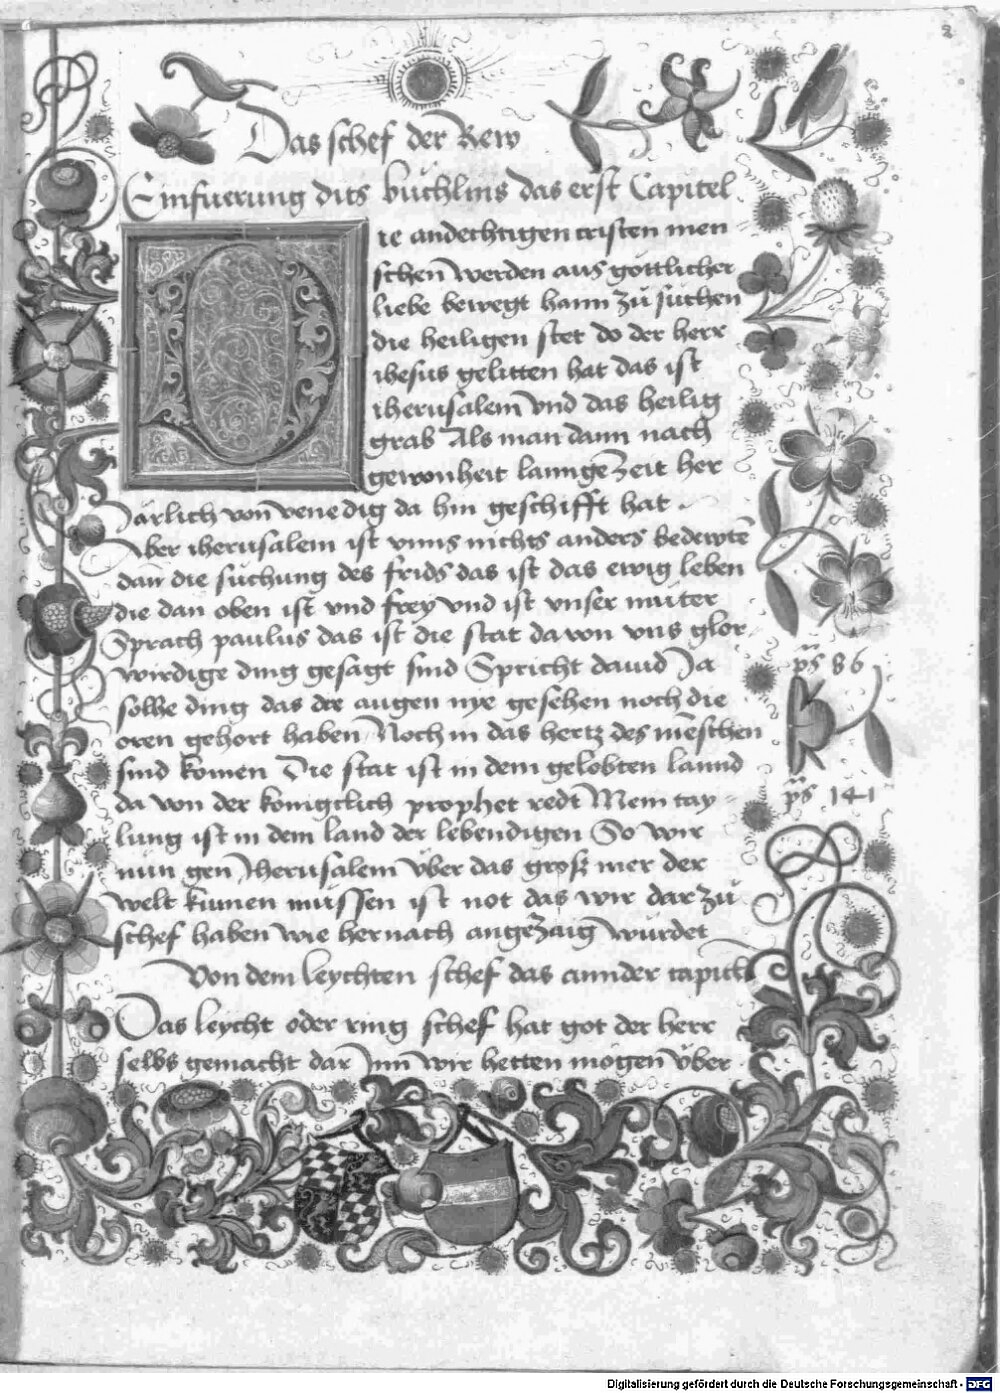 2
Das schef der Rew
Einfuerung dits büchlins das erst Capitel
Die andechtigen cristen men
schen werden aus gottlicher
liebe bewegt hann zů suchen
die heiligen stet do der herr
ihesus gelitten hat das ist
iherusalem vnd das heilig
grab Als man dann nach
gewonheit lannge zeit her
Järlich von venedig da hin geschifft hat
Aber iherusalem ist vnns nichts anders bedewtē
dan die suchung des frids das ist das ewig leben
die dan oben ist vnd frey vnd ist vnser můter
Sprach paulus das ist die stat da von vns glor
wirdige ding gesagt sind Spricht dauid Ja
sollhe ding das die augen nye gesehen noch die
oren gehort haben Noch in das hertz des mēschen
sind komen Die stat ist in dem gelobten lannd
ps 86
da von der konigclich prophet redt Mein tay
ps 141
lung ist in dem land der lebendigen So wir
nun gen Jherusalem über das groß mer der
welt kumen müssen ist not das wir dar zů
schef haben wie hernach angezaig würdet
Von dem leychten schef das annder capitl
Das leycht oder ring schef hat got der herr
selbs gemacht dar Jnn wir hetten mögen über
Digitalisierung gefördert durch die Deutsche Forschungsgemeinschaft - DFG